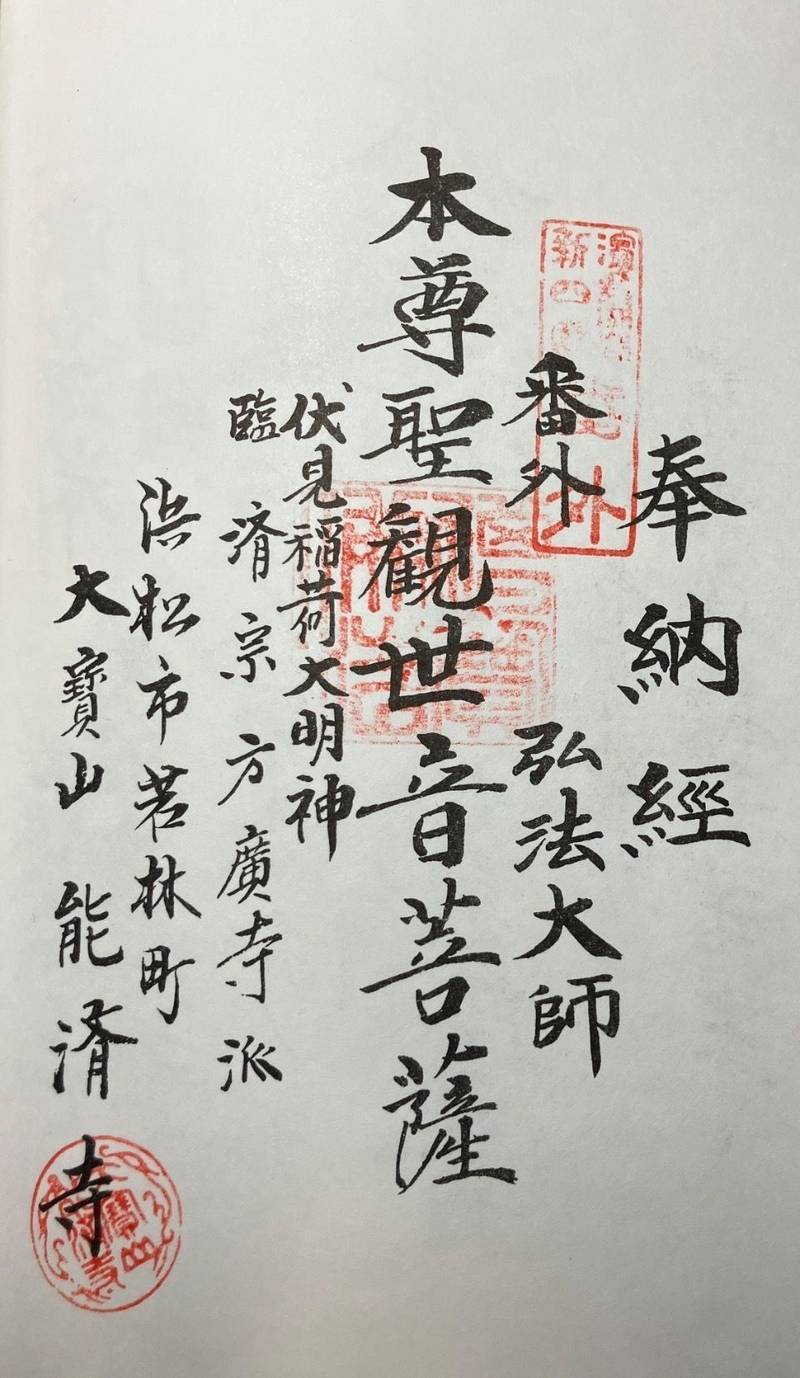 奉納經
番外 弘法大師
本尊聖観世音菩薩
伏見稲荷大明神
臨済宗方廣寺派
浜松市若林町
大寶山能済寺